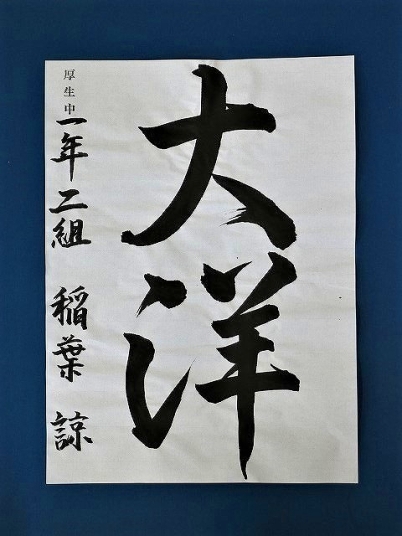 大洋
厚生中一年二組 稲葉 諒